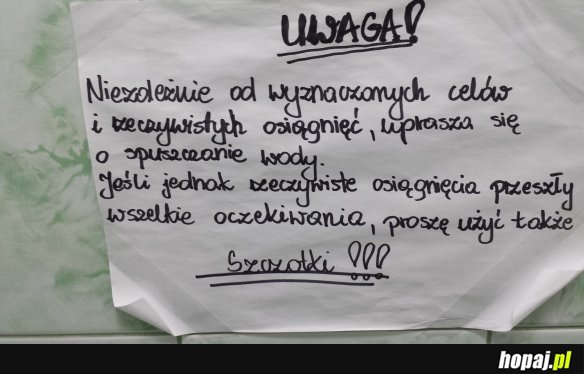 UWAGA!
Niezależnie od wyznaczonych celów
i rzeczywistych osiągnięć, uprasza się
o spuszczanie wody.
Jeśli jednak rzeczywiste osiągnięcia przeszły
wszelkie oczekiwania, proszę użyć także
Szczotki !!!
hopaj.pl